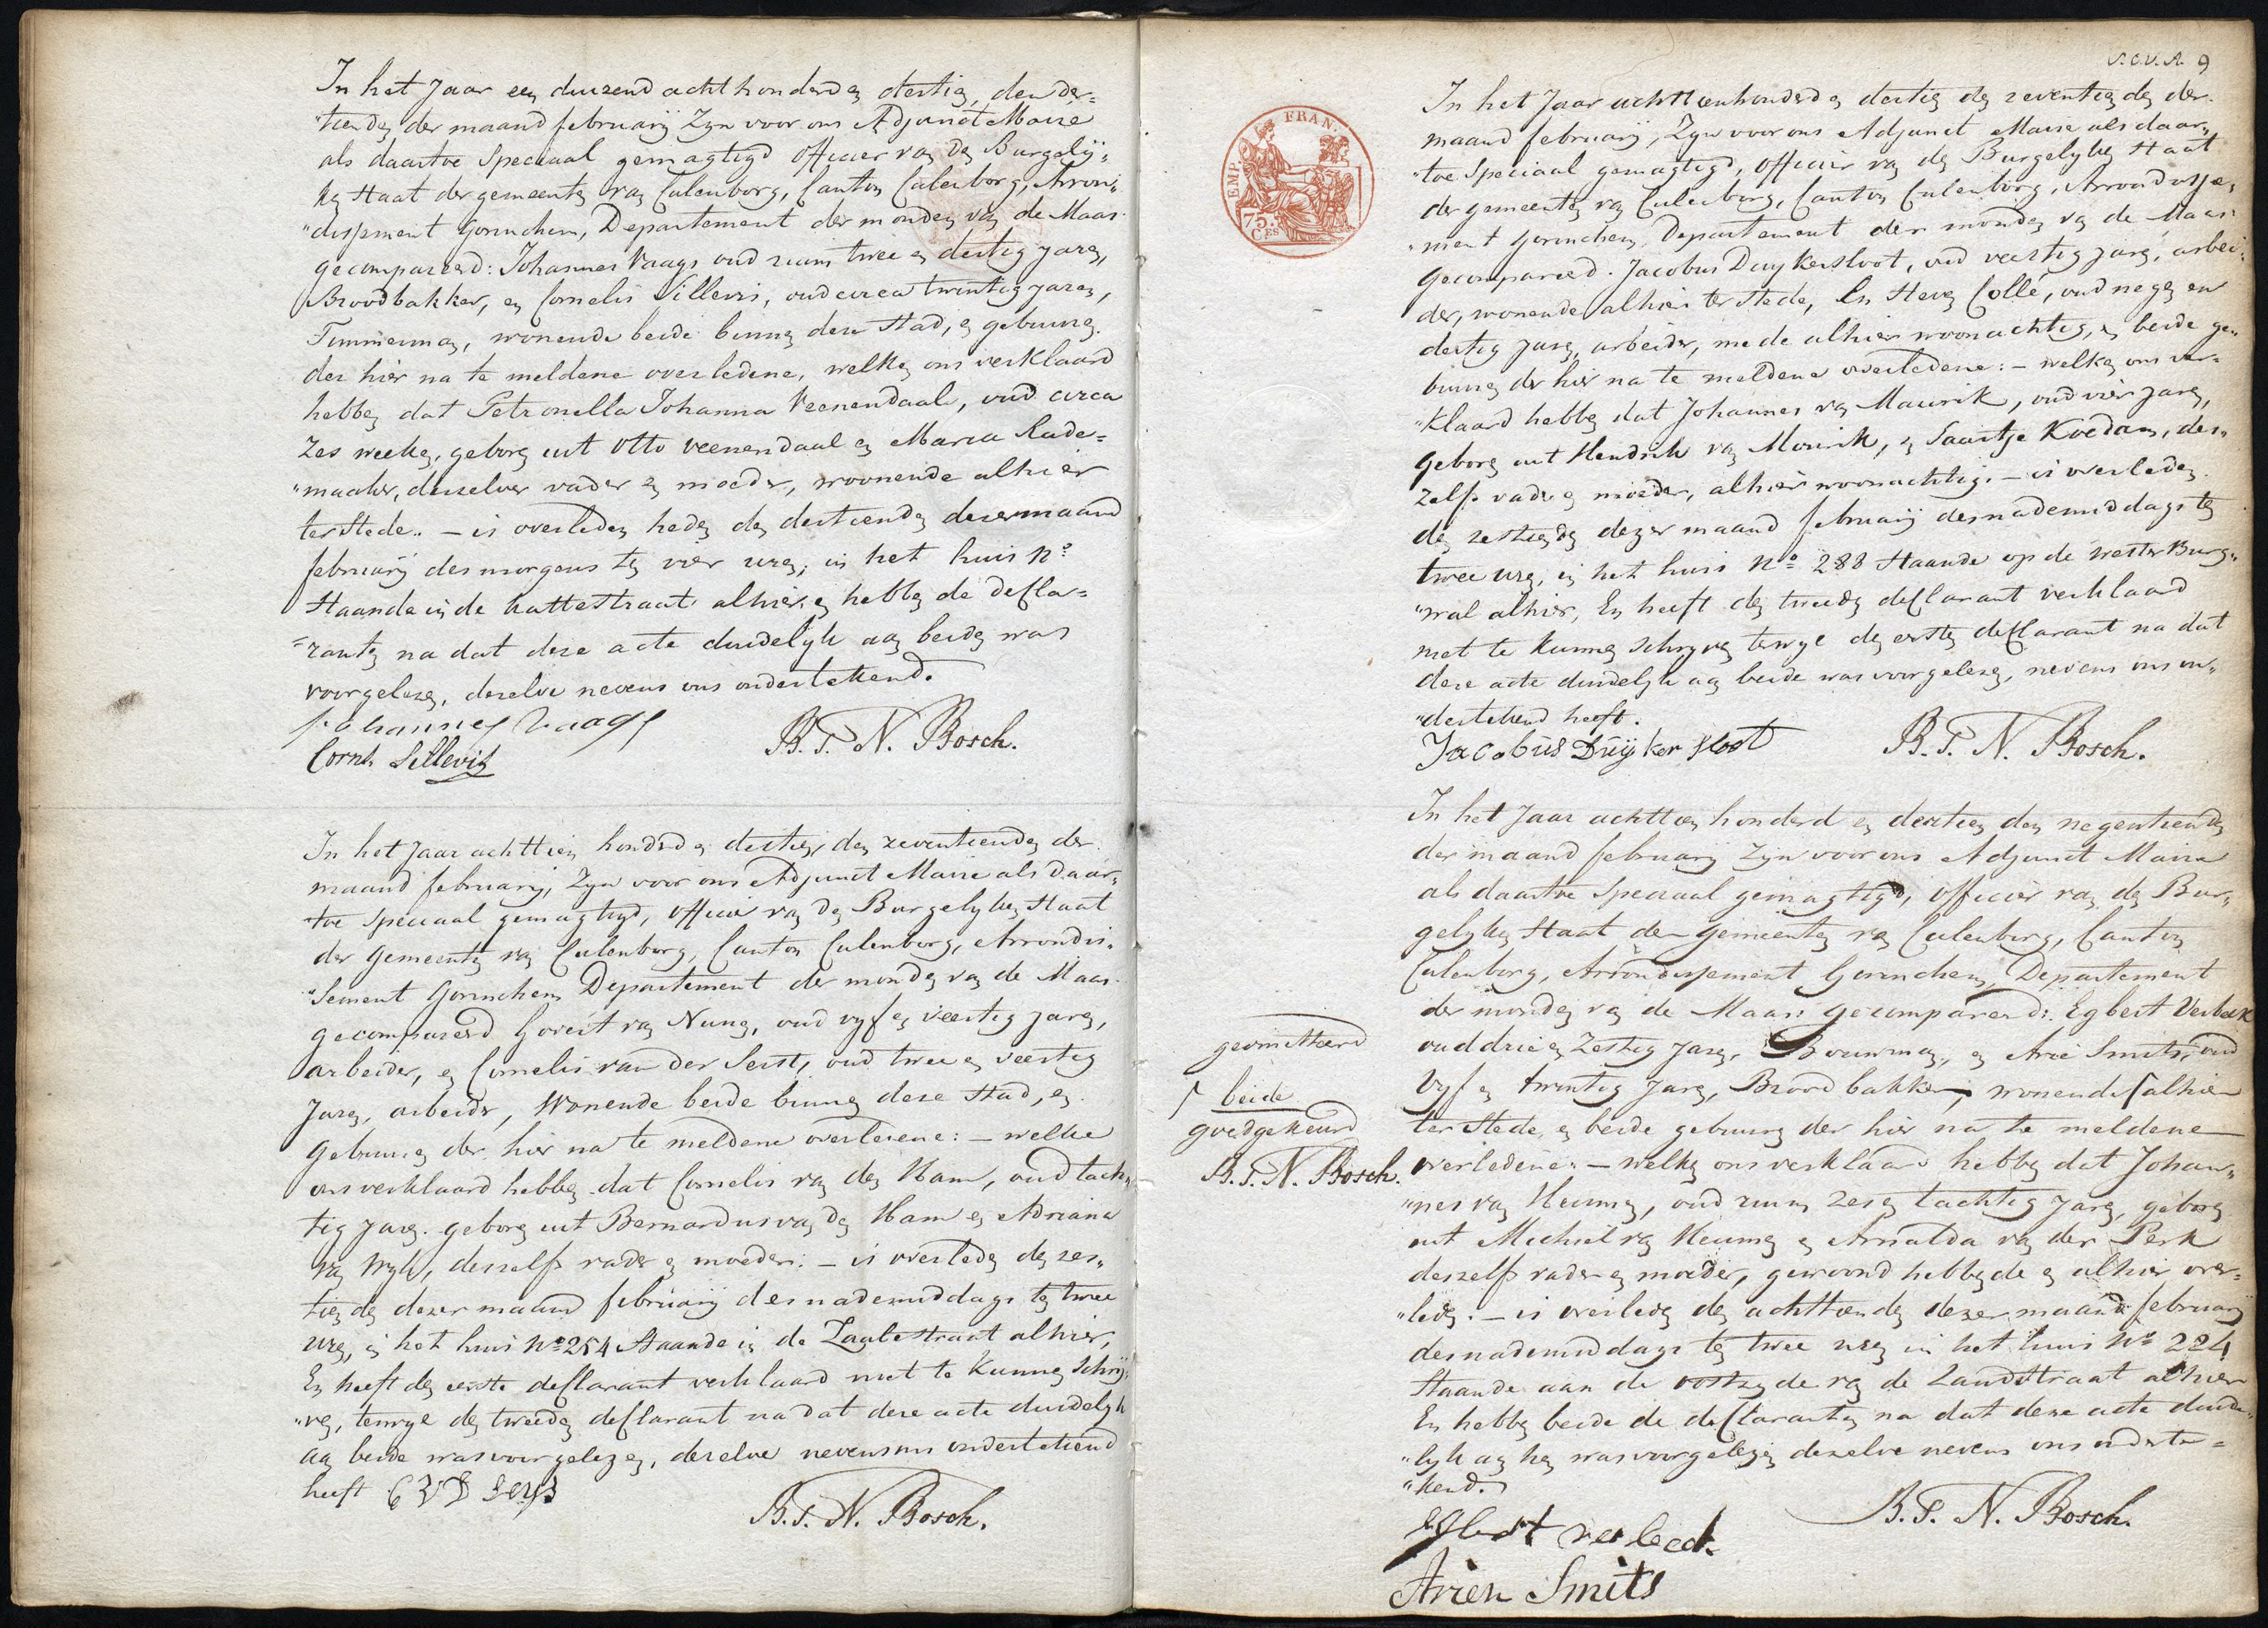 In het Jaar een duizend acht honderd en dertig, den der=
"tienden der maand februarij Zyn voor ons Adjunct Maire
als daartoe Speciaal gemagtigd officier van den Burgelij=
ken Staat der gemeente van Culenborg, Canton Culenborg, Arron=
"dissement Gorinchem, Department der monden van de Maas
gecompareerd: Johannes Vaags oud ruim twee en dertig jaren,
Broodbakker, en Cornelis Sillevis, oud circa twintig jaren,
Timmerman, wonende beide binnen deze Stad, en gebuuren
der hier na te meldene overledene, welken ons verklaard
hebben dat Petronella Johanna Veenendaal, oud circa
Zes weeken, geboren uit Otto veenendaal en Maria Rade=
"maaker, derzelver vader en moeder, woonende alhier
ter Stede. – is overleden heden den dertienden dezer maand
februarij des morgens ten vier uren, in het huis No
Staande in de kattestraat alhier en hebben de decla=
=ranten na dat deze acte duidelyk aan beiden was
voorgelezen, dezelve nevens ons ondertekend.
Johannes Vaags
B. T. N. Bosch.
Corns. Sillevis
In het Jaar achttien honderd en dertien, den zeventienden der
maand februarij, Zyn voor ons Adjunct Maire als daar=
"toe Speciaal gemagtigd, officier van den Burgelyken Staat
der Gemeente van Culenborg, Canton Culenborg, Arrondis=
"sement Gorinchem Departement der monden van de Maas
gecompareerd Goveert van Nunen, oud vyf en veertig jaren,
arbeider, en Cornelis van der Serst, oud twee en veertig
Jaren, arbeider, Wonende beide binnen deze Stad, en
Gebuuren der hier na te meldene overledene: – welke
ons verklaard hebben dat Cornelis van den Ham, oud tach=
tig jaren. geboren uit Bernardus van den Ham en Adriana
van Wyk, deszelfs vader en moeder: – is overleden den zes=
tienden dezer maand februarij des nademiddags ten twee
uren, in het huis No 254 Staande in de Zaalestraat alhier,
En heeft den eerste declarant verklaard niet te kunnen schrij=
"ven, terwyl den tweeden declarant na dat deze acte duidelyk
aan beide was voorgelezen, dezelve nevens ons ondertekend
heeft C V D Sers
B. T. N. Bosch.
N.C.V.A. 9
EMP. FRAN.
75. CES
In het Jaar achttienhonderd en dertig den zeventienden der
maand februarij, Zyn voor ons Adjunct Maire als daar=
"toe Speciaal gemagtigd, officier van den Burgelyken Staat
der gemeenten van Culenborg, Canton Culenborg, Arrondisse=
"ment Gorinchem, Departement der monden van de Maas
Gecompareerd. Jacobus Duykersloot, oud veertig jaren, arbei=
der, wonende alhier ter stede, En Steven Collé, oud negen en
dertig jaren, arbeider, mede alhier woonachtig, en beide ge=
buuren der hier na te meldene overledene: – welken ons ver=
"klaard hebben dat Johannes van Maurik, oud vier jaren,
geboren uit Hendrik van Mourik, en Saartje Koedam, des=
zelfs vader en moeder, alhier woonachtig. – is overleden
den zestienden dezer maand februarij des nademiddags ten
twee uren, in het huis No 288 Staande op de Wester Burg=
"wal alhier, En heeft den tweeden declarant verklaard
niet te kunnen schryven terwyl den eersten declarant na dat
deze acte duidelyk aan beide was voorgelezen, nevens ons on=
"dertekend heeft.
Jacobus Duijkersloot
B. T. N. Bosch.
In het Jaar achttien honderd en dertien den negentienden
der maand februarij Zijn voor ons Adjunct Maire
als daartoe Speciaal gemagtigd, officier van den Bur=
gelyken Staat der Gemeenten van Culenborg, Canton
Culenborg, Arrondissement Gorinchem, Departement
der monden van de Maas: gecompareerd: Egbert Verbeek
oud drie en Zestig Jaren, Bouwman, en Arie Smits, oud
Vyf en twintig Jaren, Broodbakker, wonende ⌈ alhier
ter Stede, en beide gebuuren der hier na te meldene
overledene: – welken ons verklaard hebben dat Johan=
"nes van Keunen, oud ruim zes en tachtig jaren, geboren
uit Michiel van Keunen en Arnolda van der Perk
deszelfs vader en moeder, gewoond hebbende en alhier over=
"leden. – is overleden den achttienden dezer maand februarij
des nademiddags ten twee uren in het huis No 224
Staande aan de oostzyde van de Zandstraat alhier
En hebben beide de declaranten na dat deze acte duide=
"lyk aan hen was voorgelezen dezelve nevens ons onderte=
"kend.
B. T. N. Bosch.
Egbert verbeek
Arien Smits
geomitteerd
⌈ beide
goedgekeurd
B. T. N. Bosch.